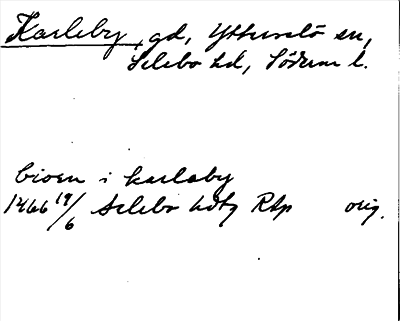 Karleby, gd, Ytterselö sn,
Selebo hd, Söderm l.
bioen i karlaby
1466 19/6 Selebo hdtg RAp orig.